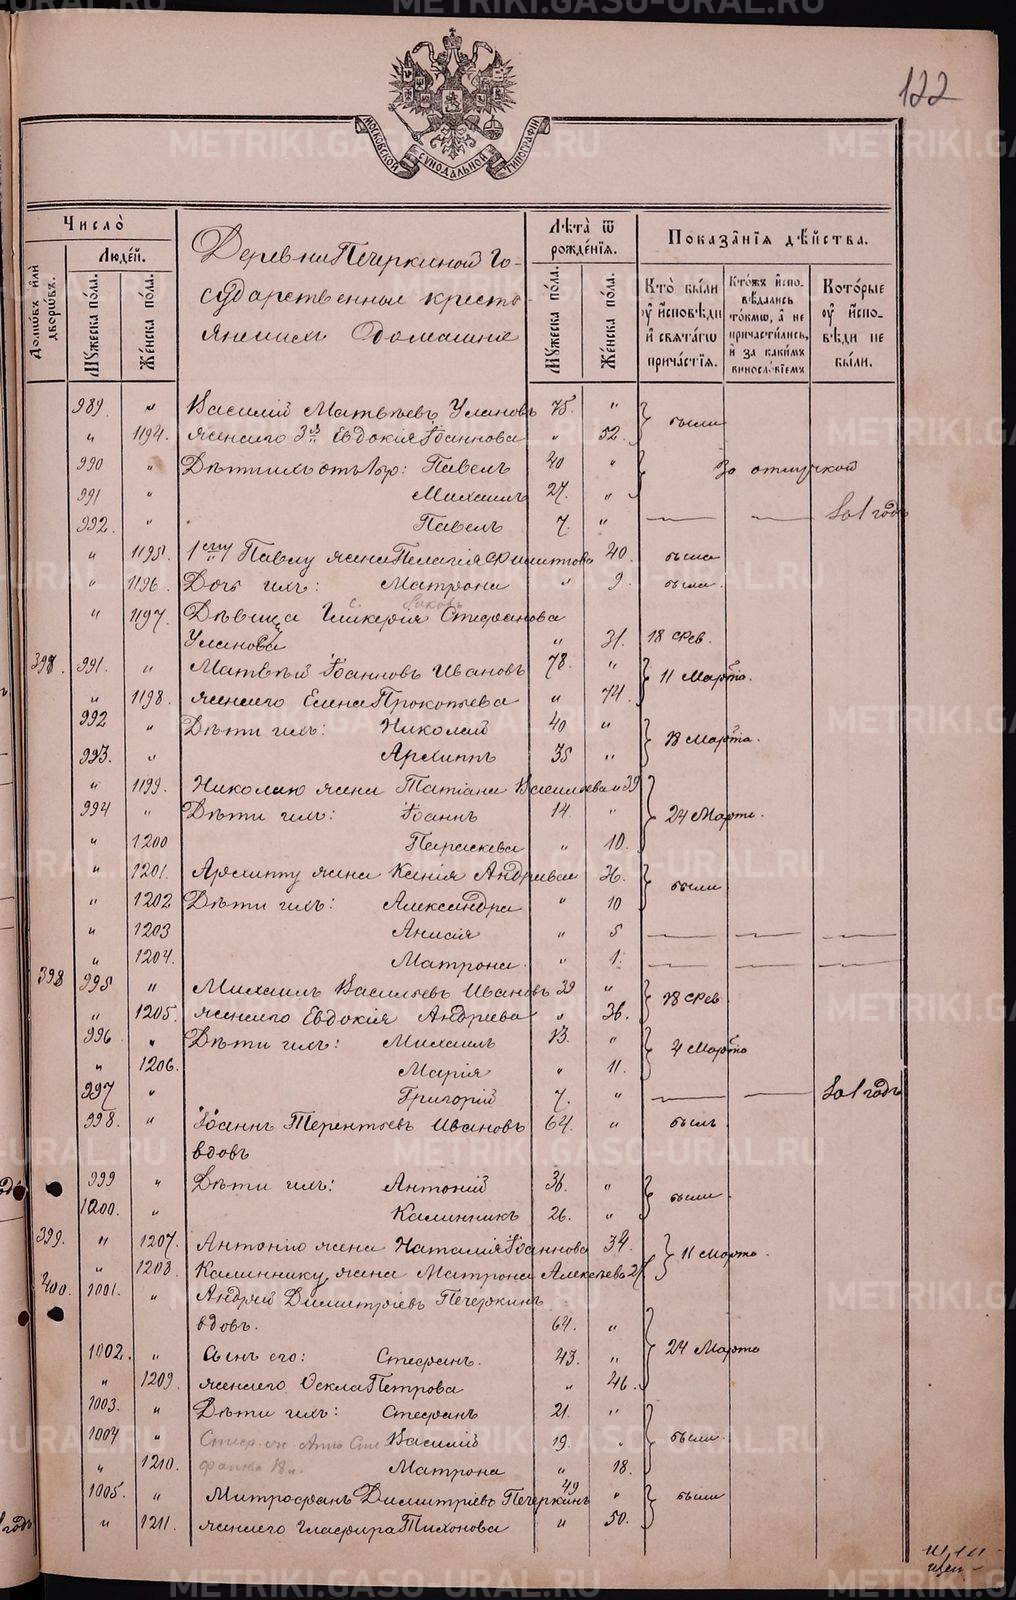 122
МОСКОВСКОЙ СѴНОДАЛЬНОЙ ТИПОГРАФІИ
Число̀
Людей.
Домовъ или дворовъ.
Мꙋжеска пола.
Женска пола.
Деревни Печеркиной Го-
сударственные кресть-
яне и ихъ Домашніе
Лѣта ѿ рожденїѧ.
Мꙋжеска пола.
Женска пола.
Показанїѧ дѣйства.
Кто были ᲂу исповѣди и свѧтагѡ причастїѧ.
Ктожъ исповѣдались токмѡ, а не причастились, и за какимъ винословїемъ
Которые ᲂу исповѣди не были.
989 " Василій Матвѣевъ Улановъ 75. " были
" 1194. жена его 3я Евдокія Іоаннова " 52.
990 " Дѣти ихъ отъ 1 бр: Павелъ 40 " За отлучкой
991 " Михаилъ 27. "
992. " Павелъ 7. " — — За 1 годъ
" 1195. 1му Павлу жена Пелагія Филиппова 40. была
" 1196. Дочь ихъ: Матрона " 9. была.
" 1197. Дѣвица Гликерія Стефанова
Уланова " 31. 18 Фев.
398. 991. " Матвѣй Іоанновъ Ивановъ 78. " 11 Марта.
" 1198. жена его Елена Прокопьева " 74.
992 " Дѣти ихъ: Николай 40 " 18 Марта.
993. " Архиппъ 35 "
" 1199. Николаю жена Татіана Васильева " 39 24 Марта.
994 " Дѣти ихъ: Іоаннъ 14. "
" 1200 Параскева " 10.
" 1201. Архиппу жена Ксенія Андреева 36. были
" 1202 Дѣти ихъ: Александра " 10
" 1203 Анисія " 5 — — —
" 1204. Матрона. " 1. — — —
398 995 " Михаилъ Васильевъ Ивановъ 39 " 18 Фев
" 1205. жена его Евдокія Андреева " 36.
996 " Дѣти ихъ: Михаилъ 13. " 4 Марта
" 1206. Марія " 11.
997 " Григорій 7. " — — За 1 годъ
998. " Іоаннъ Терентьевъ Ивановъ 64. " былъ
вдовъ
999 " Дѣти ихъ: Антоній 36. " были.
1000. " Каллинникъ 26. "
399. " 1207. Антонію жена Наталія Іоаннова 34. 11 Марта.
" 1208. Каллиннику жена Матрона Алексѣева 27
400. 1001. " Андрей Димитріевъ Печеркинъ
вдовъ. 64. " 24 Марта
1002. " Сынъ его: Стефанъ. 43. "
" 1209 жена его Ѳекла Петрова " 46.
1003. " Дѣти ихъ: Стефанъ 21. " были.
1004 " Василій 19. "
" 1210. Матрона " 18.
1005. " Митрофанъ Димитріевъ Печеркинъ 49 " были
" 1211. жена его Глафира Тихонова " 50.
METRIKI.GASO-URAL.RU